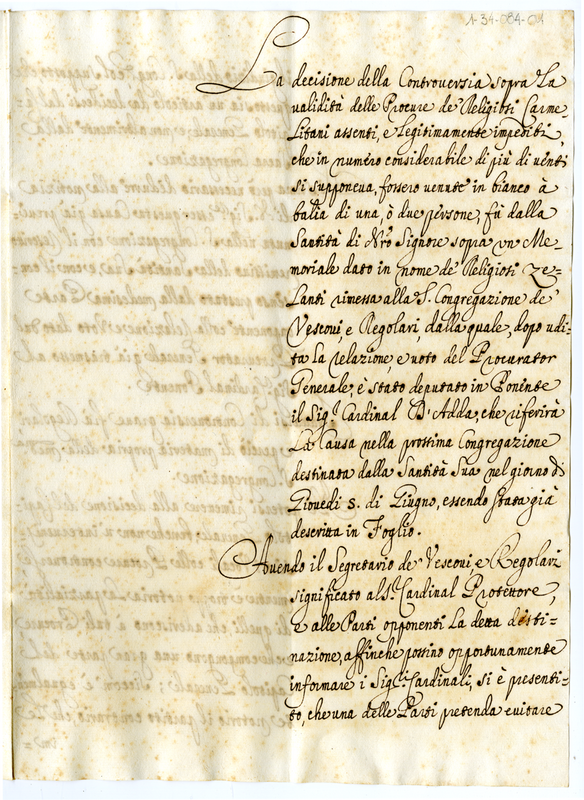 1-34-084-04
La decisione della Controversia sopra La
validità delle Procure de' Religiosi Carme-
Litani assenti, e Legitimamente impediti,
che in numero considerabile di più di uenti
si supponeua, fossero uenute in bianco à
balìa di una, ò due persone, fù dalla
Santità di Nro Signore sopra un Me-
moriale dato in nome de' Religiosi Ze-
Lanti rimessa alla S. Congregazione de'
Vescoui, e Regolari, dalla quale, dopo udi-
ta La relazione, e uoto del Procurator
Generale, è stato deputato in Ponente
il Sigr. Cardinal D'Adda, che riferirà
La Causa nella prossima Congregazione
destinata dalla Santità Sua nel giorno di
Giouedi 5. di Giugno, essendo stata già
descritta in Foglio.
Auendo il Segretario de' Vescoui, e Regolari
significato al Sr. Cardinal Protettore,
e alle Parti opponenti La detta desti=
nazione, affinche possino opportunamente
informare i Sigri. Cardinali, si è presenti-
to, che una delle Parti pretenda euitare